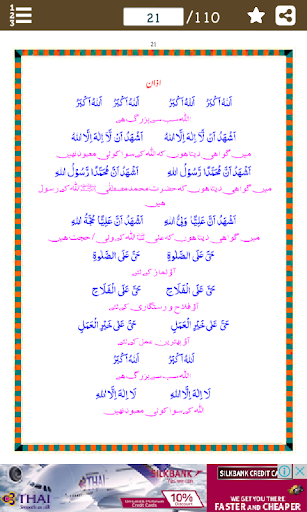 1 2 3
21 /110
21
اذان
اَللهُ اَکْبَرُ اَللهُ اَکْبَرُ اَللهُ اَکْبَرُ اَللهُ اَکْبَرُ
اللہ سب سے بزرگ ہے
اَشْهَدُ اَنْ لَّا اِلٰهَ اِلَّا اللهُ اَشْهَدُ اَنْ لَّا اِلٰهَ اِلَّا اللهُ
میں گواہی دیتا ہوں کہ اللہ کے سوا کوئی معبود نہیں
اَشْهَدُ اَنَّ مُحَمَّدًا رَّسُوْلُ اللهِ اَشْهَدُ اَنَّ مُحَمَّدًا رَّسُوْلُ اللهِ
میں گواہی دیتا ہوں کہ حضرت محمد مصطفٰی ﷺ اللہ کے رسول
ہیں
اَشْهَدُ اَنَّ عَلِيًّا وَلِيُّ اللهِ اَشْهَدُ اَنَّ عَلِيًّا حُجَّةُ اللهِ
میں گواہی دیتا ہوں کہ علی اللہ کے ولی / حجت ہیں
حَیَّ عَلَی الصَّلٰوةِ حَیَّ عَلَی الصَّلٰوةِ
آؤ نماز کے لئے
حَیَّ عَلَی الْفَلَاحِ حَیَّ عَلَی الْفَلَاحِ
آؤ فلاح و رستگاری کے لئے
حَیَّ عَلٰی خَيْرِ الْعَمَلِ حَیَّ عَلٰی خَيْرِ الْعَمَلِ
آؤ بہترین عمل کے لئے
اَللهُ اَکْبَرُ اَللهُ اَکْبَرُ
اللہ سب سے بزرگ ہے
لَا اِلٰهَ اِلَّا اللهُ لَا اِلٰهَ اِلَّا اللهُ
اللہ کے سوا کوئی معبود نہیں
THAI
SILKBANK
Platinum
Credit Cards
10%
DISCOUNT
SILKBANK CREDIT CA
WE GET YOU THERE
FASTER AND CHEAPER